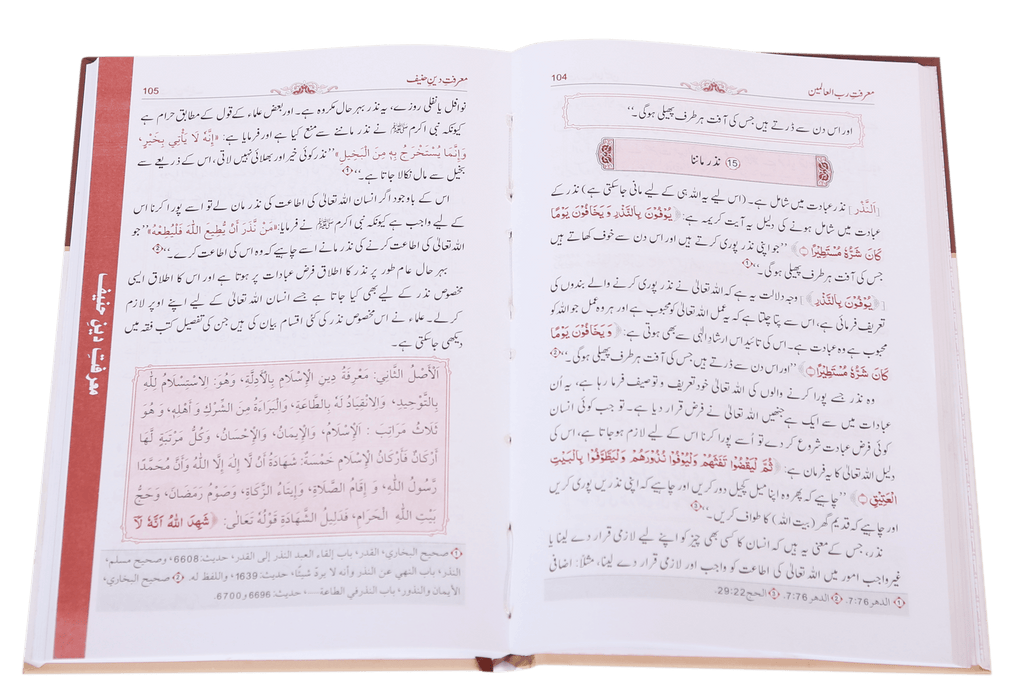 معرفتِ رب العالمین
104
اور اس دن سے ڈرتے ہیں جس کی آفت ہر طرف پھیلی ہوگی۔‘‘
15 نذر ماننا
[اَلنَّذْر] نذر عبادت میں شامل ہے۔ (اس لیے یہ اللہ ہی کے لیے مانی جاسکتی ہے) نذر کے
عبادت میں شامل ہونے کی دلیل یہ آیت کریمہ ہے: ﴿یُوْفُوْنَ بِالنَّذْرِ وَیَخَافُوْنَ یَوْمًا
كَانَ شَرُّهٗ مُسْتَطِیْرًا﴾ ’’جو اپنی نذر پوری کرتے ہیں اور اس دن سے خوف کھاتے ہیں
جس کی آفت ہر طرف پھیلی ہوگی۔‘‘①
[﴿یُوْفُوْنَ بِالنَّذْرِ﴾] وجہ دلالت یہ ہے کہ اللہ تعالیٰ نے نذر پوری کرنے والے بندوں کی
تعریف فرمائی ہے، اس سے پتا چلتا ہے کہ یہ عمل اللہ تعالیٰ کو محبوب ہے اور ہر وہ عمل جو اللہ کو
محبوب ہے وہ عبادت ہے۔ اس کی تائید اس ارشاد الٰہی سے بھی ہوتی ہے: ﴿وَیَخَافُوْنَ یَوْمًا
كَانَ شَرُّهٗ مُسْتَطِیْرًا﴾ ’’اور اس دن سے ڈرتے ہیں جس کی آفت ہر طرف پھیلی ہوگی۔‘‘②
وہ نذر جسے پورا کرنے والوں کی اللہ تعالیٰ خود تعریف و توصیف فرما رہا ہے، یہ اُن
عبادات میں سے ایک ہے جنھیں اللہ تعالیٰ نے فرض قرار دیا ہے۔ تو جب کوئی انسان
کوئی فرض عبادت شروع کر دے تو اُسے پورا کرنا اس کے لیے لازم ہوجاتا ہے، اس کی
دلیل اللہ تعالیٰ کا یہ فرمان ہے: ﴿ثُمَّ لْیَقْضُوْا تَفَثَهُمْ وَلْیُوْفُوْا نُذُوْرَهُمْ وَلْیَطَّوَّفُوْا بِالْبَیْتِ
الْعَتِیْقِ﴾ ’’چاہیے کہ پھر وہ اپنا میل کچیل دور کریں اور چاہیے کہ اپنی نذریں پوری کریں
اور چاہیے کہ قدیم گھر (بیت اللہ) کا طواف کریں۔‘‘③
نذر، جس کے معنی یہ ہیں کہ انسان کا کسی بھی چیز کو اپنے لیے لازمی قرار دے لینا یا
غیر واجب امور میں اللہ تعالیٰ کی اطاعت کو واجب اور لازمی قرار دے لینا، مثلاً: اضافی
① الدهر 7:76. ② الدهر 7:76. ③ الحج 29:22.
معرفتِ دینِ حنیف
105
نوافل یا نفلی روزے، یہ نذر بہر حال مکروہ ہے۔ اور بعض علماء کے قول کے مطابق حرام ہے
کیونکہ نبی اکرم ﷺ نے نذر ماننے سے منع کیا ہے اور فرمایا ہے: «إِنَّهُ لَا يَأْتِي بِخَيْرٍ،
وَإِنَّمَا يُسْتَخْرَجُ بِهِ مِنَ الْبَخِيلِ» ’’نذر کوئی خیر اور بھلائی نہیں لاتی، اس کے ذریعے سے
بخیل سے مال نکالا جاتا ہے۔‘‘①
اس کے باوجود اگر انسان اللہ تعالیٰ کی اطاعت کی نذر مان لے تو اسے پورا کرنا اس
کے لیے واجب ہے کیونکہ نبی اکرم ﷺ نے فرمایا: «مَنْ نَّذَرَ أَنْ يُّطِيعَ اللّٰهَ فَلْيُطِعْهُ» ’’جو
اللہ تعالیٰ کی اطاعت کرنے کی نذر مانے اسے چاہیے کہ وہ اس کی اطاعت کرے۔‘‘②
بہر حال عام طور پر نذر کا اطلاق فرض عبادات پر ہوتا ہے اور اس کا اطلاق ایسی
مخصوص نذر کے لیے بھی کیا جاتا ہے جسے انسان اللہ تعالیٰ کے لیے اپنے اوپر لازم
کر لے۔ علماء نے اس مخصوص نذر کی کئی اقسام بیان کی ہیں جن کی تفصیل کتب فقہ میں
دیکھی جاسکتی ہے۔
اَلْأَصْلُ الثَّانِي: مَعْرِفَةُ دِينِ الْإِسْلَامِ بِالْأَدِلَّةِ، وَهُوَ: الِاسْتِسْلَامُ لِلّٰهِ
بِالتَّوْحِيدِ، وَالِانْقِيَادُ لَهُ بِالطَّاعَةِ، وَالْبَرَاءَةُ مِنَ الشِّرْكِ وَأَهْلِهِ، وَهُوَ
ثَلَاثُ مَرَاتِبَ: اَلْإِسْلَامُ، وَالْإِيمَانُ، وَالْإِحْسَانُ، وَكُلُّ مَرْتَبَةٍ لَّهَا
أَرْكَانٌ فَأَرْكَانُ الْإِسْلَامِ خَمْسَةٌ: شَهَادَةُ أَنْ لَّا إِلٰهَ إِلَّا اللّٰهُ وَأَنَّ مُحَمَّدًا
رَّسُولُ اللّٰهِ، وَإِقَامُ الصَّلَاةِ، وَإِيتَاءُ الزَّكَاةِ، وَصَوْمُ رَمَضَانَ، وَحَجُّ
بَيْتِ اللّٰهِ الْحَرَامِ، فَدَلِيلُ الشَّهَادَةِ قَوْلُهُ تَعَالٰى: ﴿شَهِدَ اللّٰهُ اَنَّهٗ لَاۤ
① صحيح البخاري، القدر، باب إلقاء العبد النذر إلى القدر، حديث: 6608، وصحيح مسلم،
النذر، باب النهي عن النذر وأنه لا يرد شيئًا، حديث: 1639، واللفظ له. ② صحيح البخاري،
الأيمان والنذور، باب النذر في الطاعة......، حديث: 6696 و6700.
معرفتِ دینِ حنیف